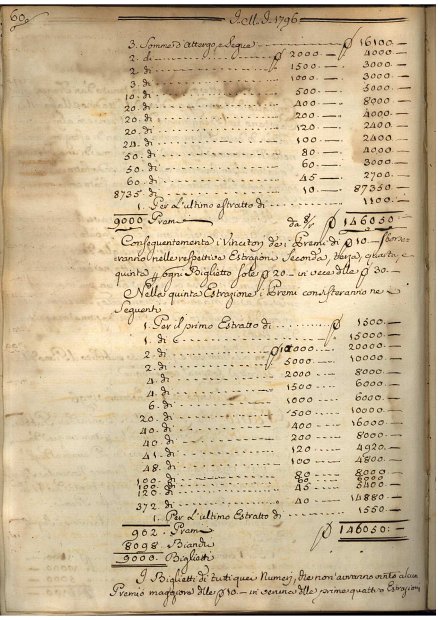 60. J. M. J. 1796
3. Somme d'Attergo, e Segue ₰ 16100.—
2. di ₰ 2000.— 4000.—
2. di 1500.— 3000.—
3. di 1000.— 3000.—
10. di 500.— 5000.—
20. di 400.— 8000.—
20. di 200.— 4000.—
20. di 120.— 2400.—
24. di 100.— 2400.—
50. di 80.— 4000.—
50. di 60.— 3000.—
60. di 45.— 2700.—
8735 di 10.— 87350.—
1. Per L'ultimo estratto di 1100.—
9000 Premi da ₰ 146050.—
Consequentemente i Vincitori de i Premi di ₰ 10.—
veranno nelle respettive Estrazioni Seconda, terza, quarta, e
quinta ogni Biglietto sole ₰ 20.— in vece delle ₰ 30.—
Nella quinta Estrazione i Premi consisteranno ne
Seguenti
1. Per il primo Estratto di ₰ 1500.—
1. di 15000.—
2. di ₰ 10000.— 20000.—
2. di 5000.— 10000.—
4. di 2000.— 8000.—
4. di 1500.— 6000.—
6. di 1000.— 6000.—
20. di 500.— 10000.—
40. di 400.— 16000.—
40. di 200.— 8000.—
41. di 120.— 4920.—
48. di 100.— 4800.—
100. di 80.— 8000.—
100. di 60.— 6000.—
120. di 45.— 5400.—
372. di 40.— 14880.—
1. Per L'ultimo Estratto di 1550.—
902. Premi ₰ 146050.—
8098. Bianchi
9000. Biglietti
I Biglietti di tutti quei Numeri, che non avranno vinto alcun
Premio maggiore delle ₰ 10.— in veruna delle prime quattro Estrazioni